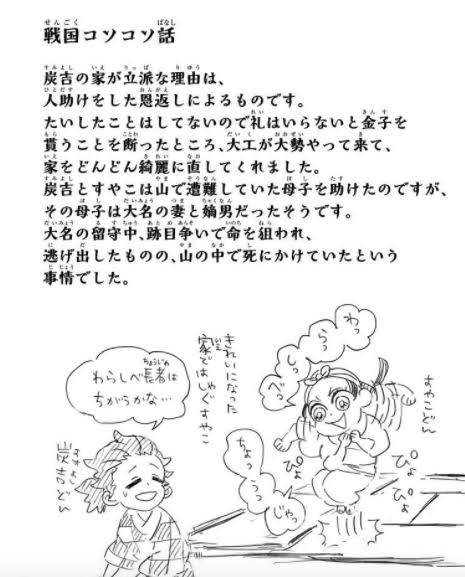 戦国コソコソ話
炭吉の家が立派な理由は、
人助けをした恩返しによるものです。
たいしたことはしてないので礼はいらないと金子を
貰うことを断ったところ、大工が大勢やって来て、
家をどんどん綺麗に直してくれました。
炭吉とすやこは山で遭難していた母子を助けたのですが、
その母子は大名の妻と嫡男だったそうです。
大名の留守中、跡目争いで命を狙われ、
逃げ出したものの、山の中で死にかけていたという
事情でした。
すやこどん
わっ
らっ
しっ
べっ
ちょっ
うっ
じゃっ
ぴょ
ぴょ
ぴょ
きれいになった
家ではしゃぐすやこ
わらしべ長者は
ちがうかな…
炭吉どん